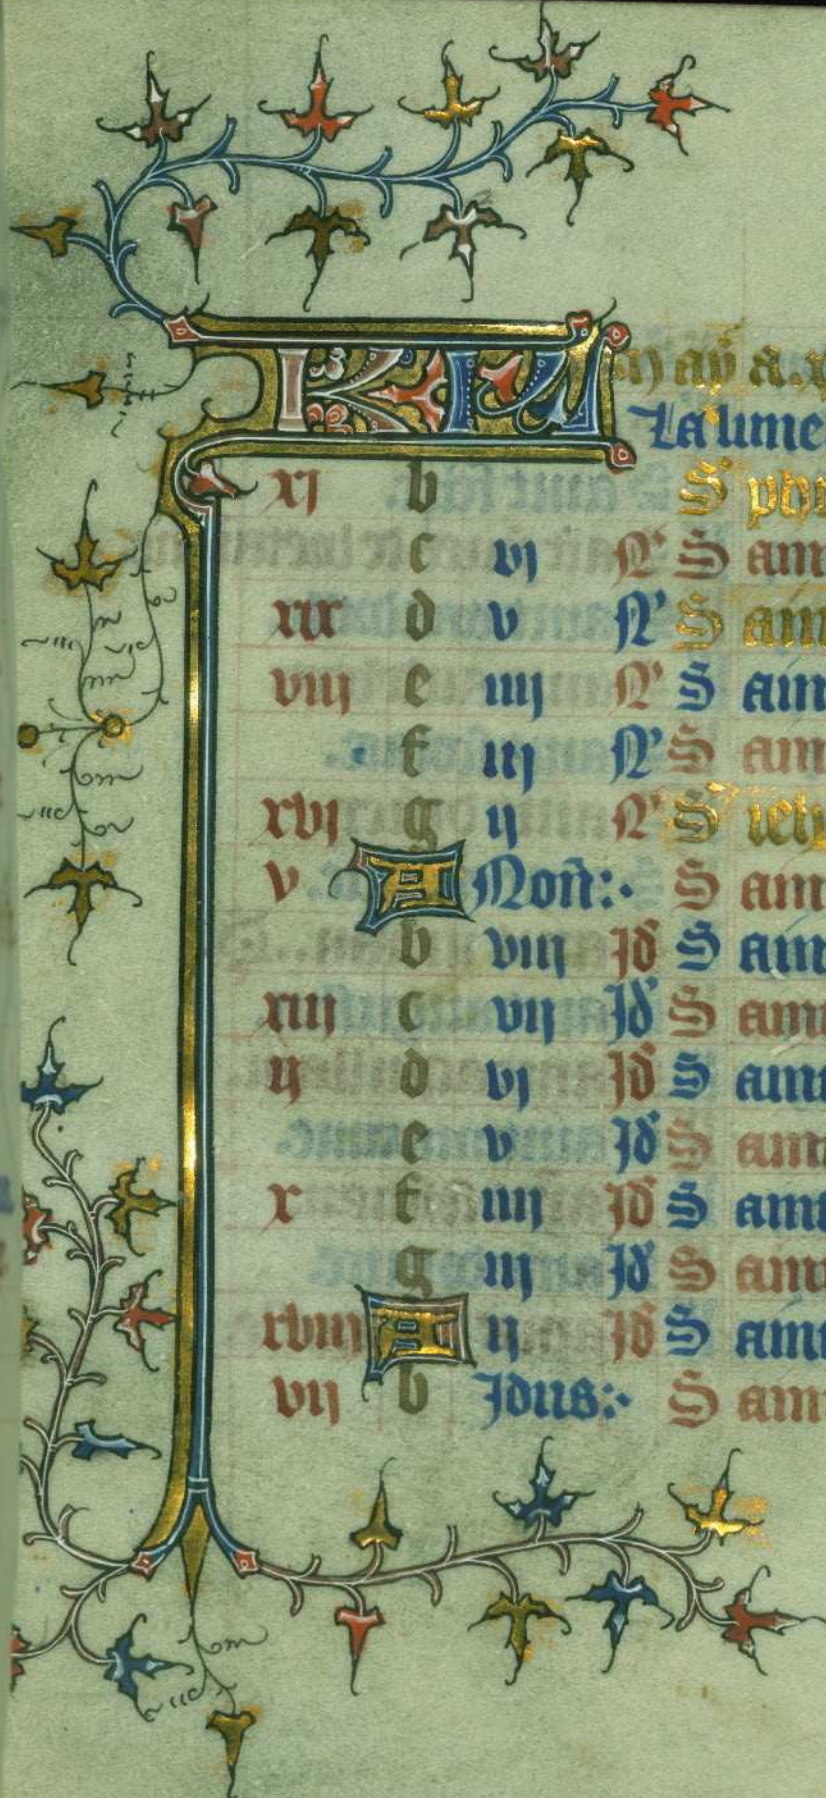 KL May a.x
La lune
xj b S phi
c vj N' S ain
xix d v N' S ain
viij e iiij N' S ain
f iij N' S ain
xvj g ij N' S ieh
v A Non: S ain
b viij Id S ain
xiij c vij Id S ain
ij d vj Id S ain
e v Id S ain
x f iiij Id S ain
g iij Id S ain
xviij A ij Id S ain
vij b Idus: S ain